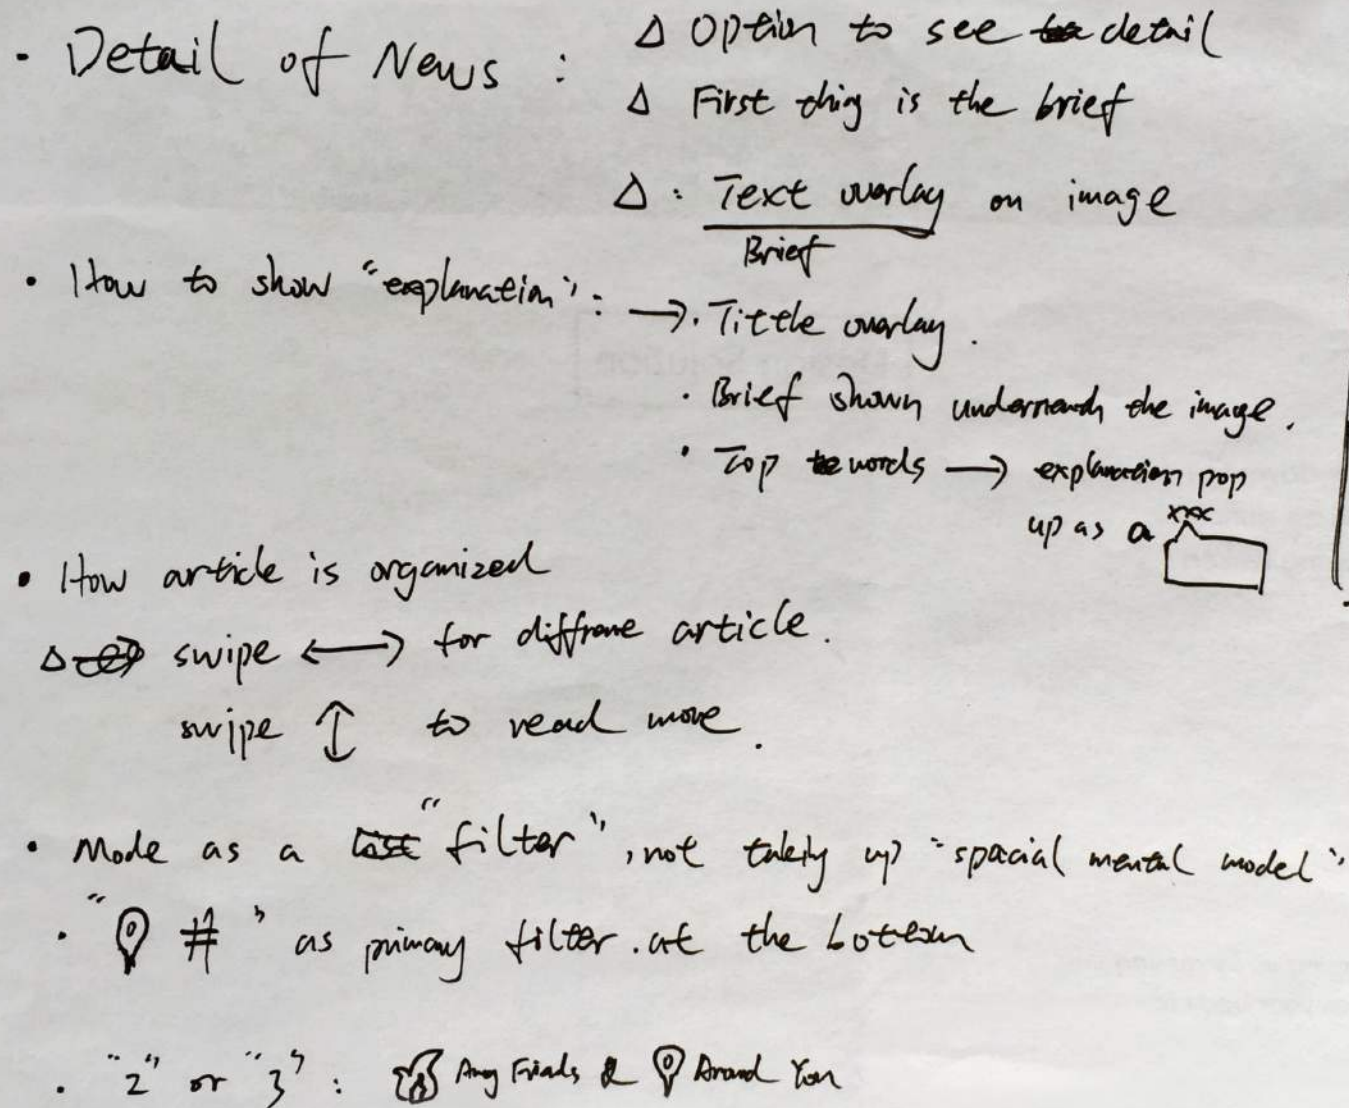 • Detail of News :
△ Option to see detail
△ First thing is the brief
△ : Text overlay on image
Brief
• How to show "explanation" : → . Tittle overlay .
• Brief shown underneath the image .
• Top words → explanation pop
up as a xxx
• How article is organized
△ swipe ↔ for diffrone article .
swipe ↕ to read more .
• Mode as a "filter" , not taking up "spacial mental model"
• " # " as primary filter . at the bottom
• "2" or "3" : Friends & Around You